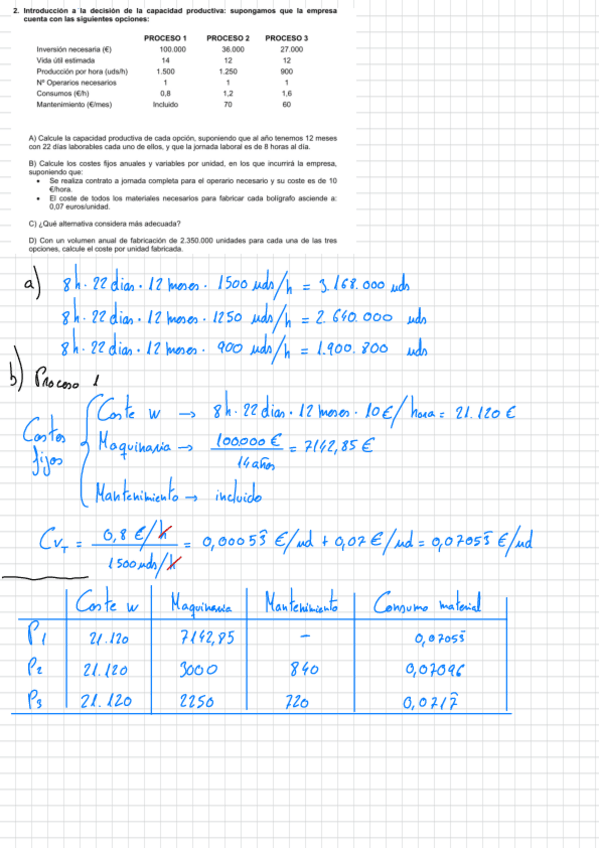 2. Introducción a la decisión de la capacidad productiva: supongamos que la empresa
cuenta con las siguientes opciones:
PROCESO 1 PROCESO 2 PROCESO 3
Inversión necesaria (€) 100.000 36.000 27.000
Vida útil estimada 14 12 12
Producción por hora (uds/h) 1.500 1.250 900
Nº Operarios necesarios 1 1 1
Consumos (€/h) 0,8 1,2 1,6
Mantenimiento (€/mes) Incluido 70 60
A) Calcule la capacidad productiva de cada opción, suponiendo que al año tenemos 12 meses
con 22 días laborables cada uno de ellos, y que la jornada laboral es de 8 horas al día.
B) Calcule los costes fijos anuales y variables por unidad, en los que incurrirá la empresa,
suponiendo que:
• Se realiza contrato a jornada completa para el operario necesario y su coste es de 10
€/hora.
• El coste de todos los materiales necesarios para fabricar cada bolígrafo asciende a:
0,07 euros/unidad.
C) ¿Qué alternativa considera más adecuada?
D) Con un volumen anual de fabricación de 2.350.000 unidades para cada una de las tres
opciones, calcule el coste por unidad fabricada.
a) 8h · 22 dias · 12 meses · 1500 uds/h = 3.168.000 uds
8h · 22 dias · 12 meses · 1250 uds/h = 2.640.000 uds
8h · 22 dias · 12 meses · 900 uds/h = 1.900.800 uds
b) Proceso 1
Costes fijos
Coste w → 8h · 22 dias · 12 meses · 10€/hora = 21.120 €
Maquinaria → 100.000 € / 14 años = 7142,85 €
Mantenimiento → incluido
CvT = 0,8 €/h / 1500 uds/h = 0,00053 €/ud + 0,07 €/ud = 0,07053 €/ud
Coste w Maquinaria Mantenimiento Consumo material
P1 21.120 7142,85 - 0,07053
P2 21.120 3000 840 0,07096
P3 21.120 2250 720 0,0717